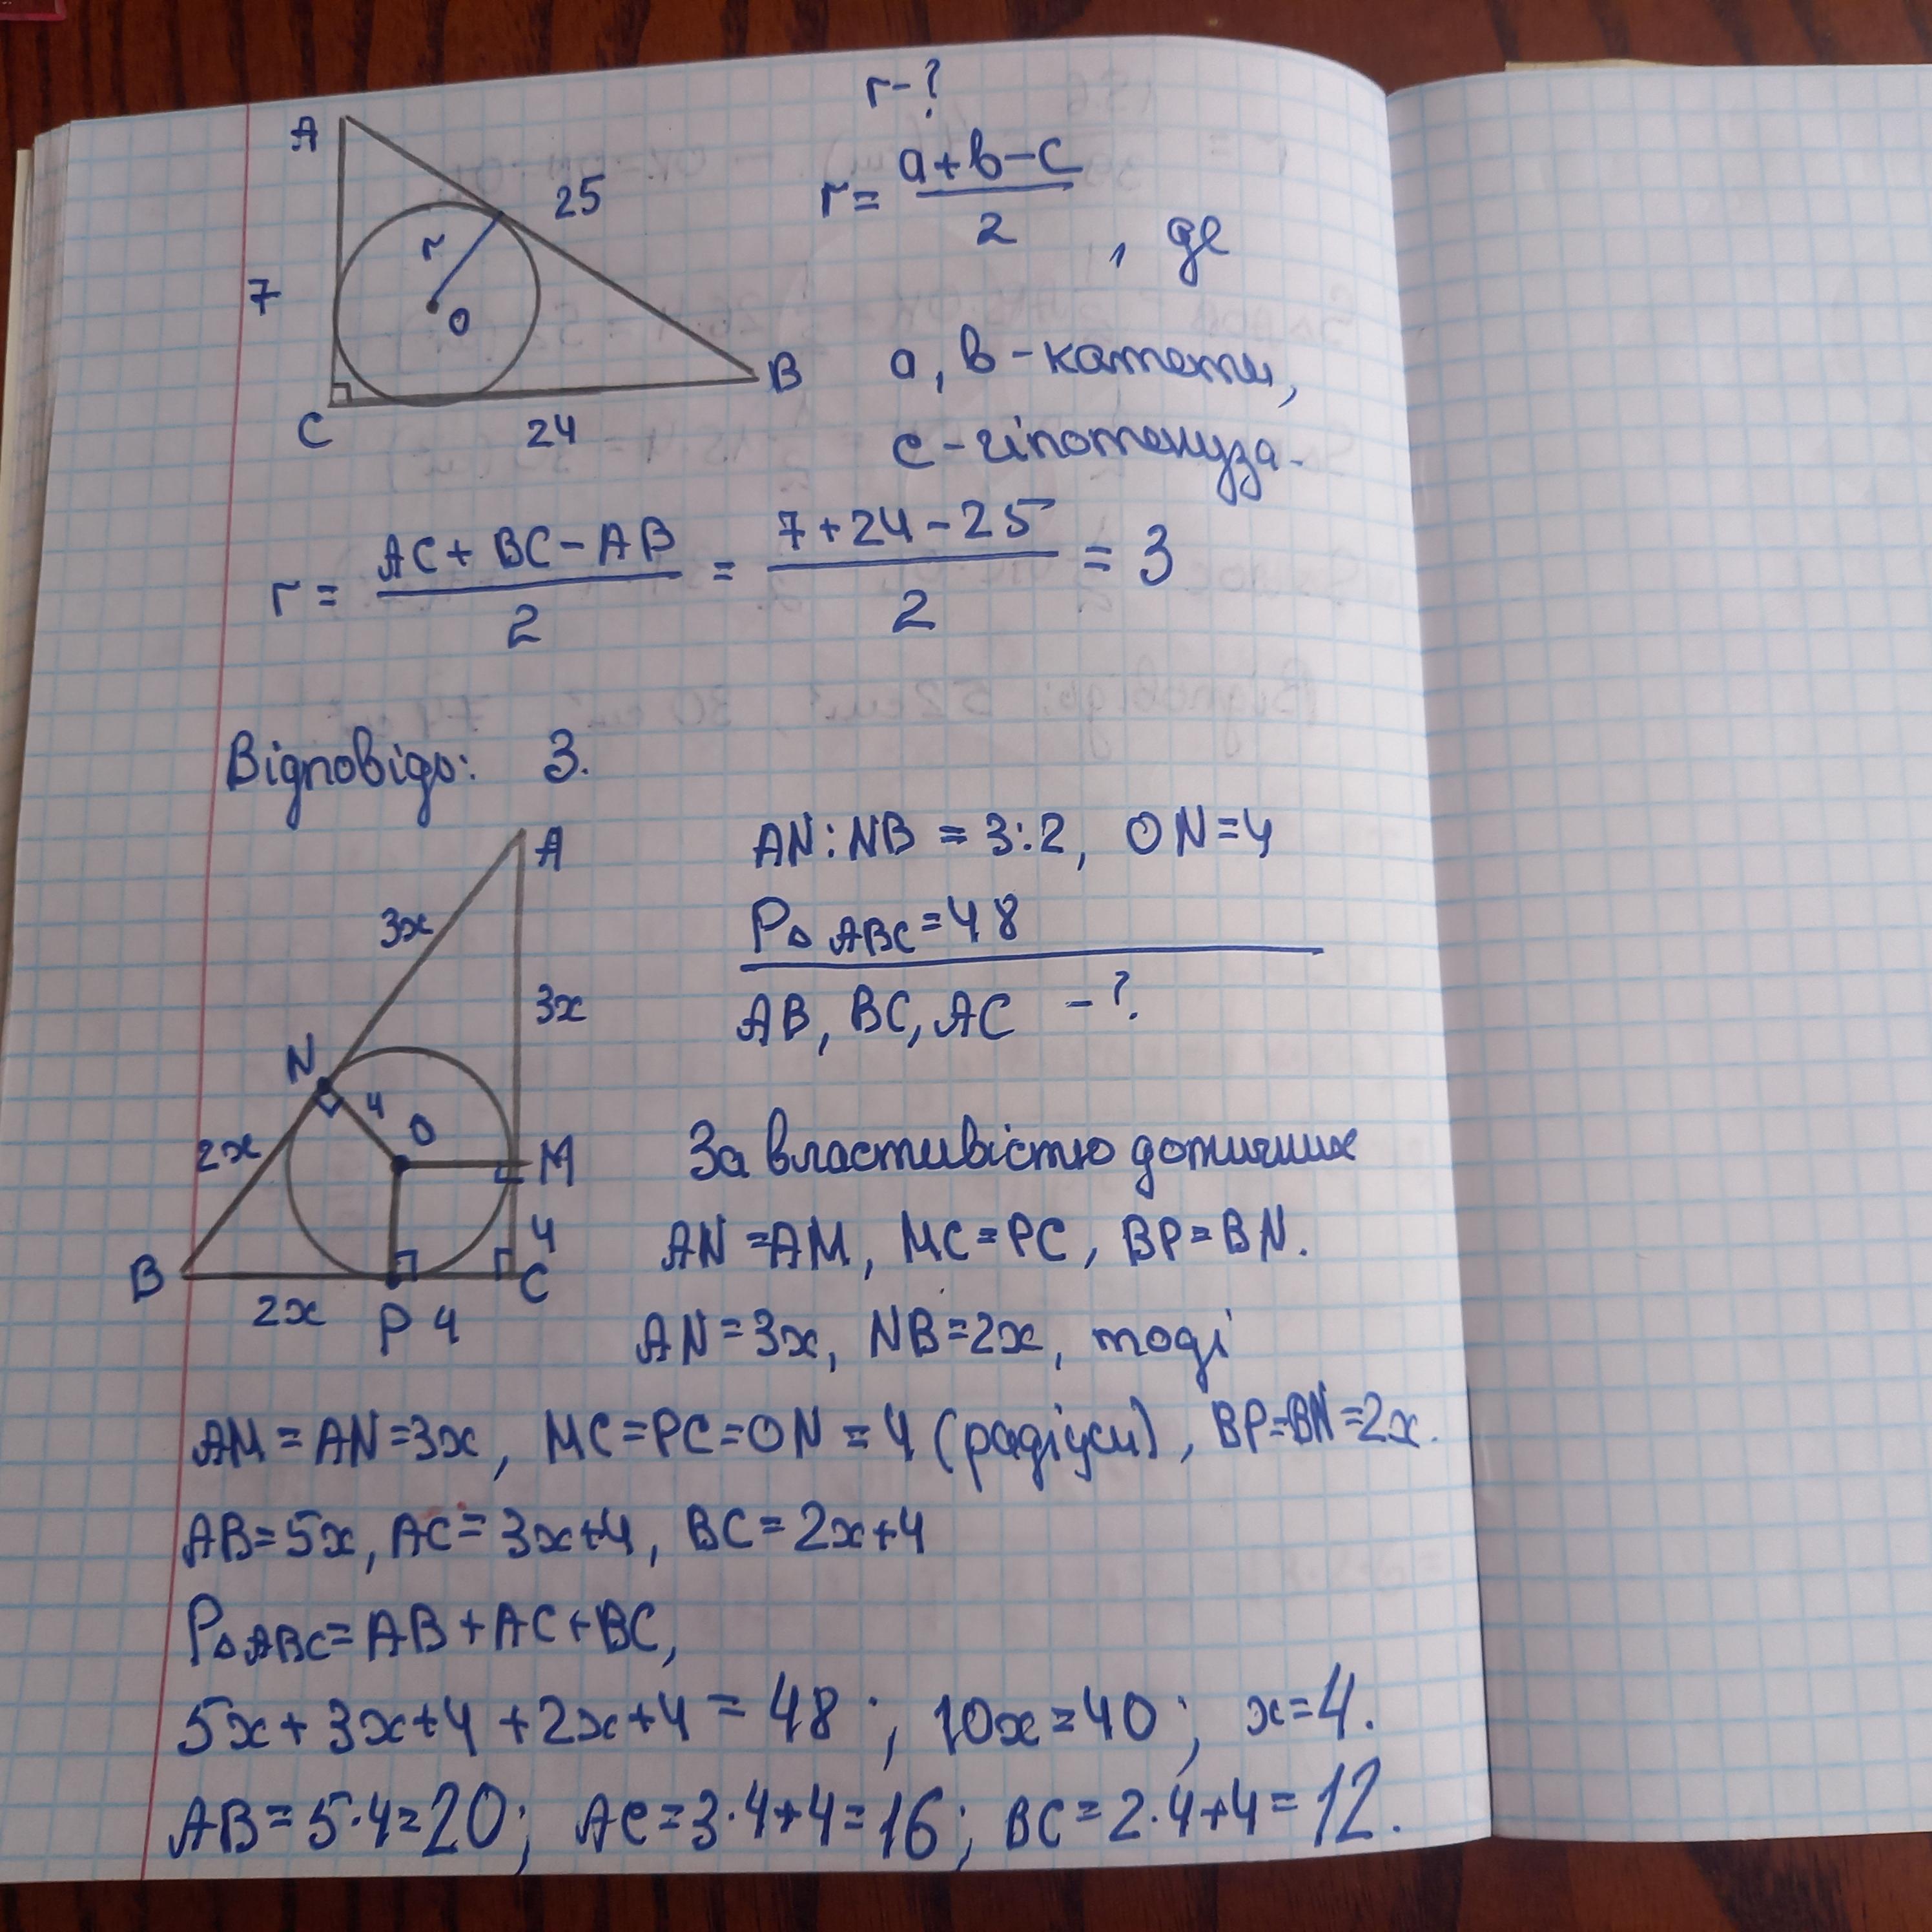 r-?
A
25
r = (a+b-c)/2, де
r
7
O
B
a, b - катети,
C
24
c - гіпотенуза.
r = (AC + BC - AB)/2 = (7 + 24 - 25)/2 = 3
Відповідь: 3.
A
AN : NB = 3:2, ON=4
3x
P△ABC = 48
3x
AB, BC, AC - ?
N
4
O
2x
M
За властивістю дотичних
4
AN = AM, MC = PC, BP = BN.
B
C
2x
P
4
AN = 3x, NB = 2x, тоді
AM = AN = 3x, MC = PC = ON = 4 (радіуси), BP = BN = 2x.
AB = 5x, AC = 3x+4, BC = 2x+4
P△ABC = AB + AC + BC,
5x + 3x+4 + 2x+4 = 48; 10x = 40; x = 4.
AB = 5·4 = 20; AC = 3·4+4 = 16; BC = 2·4+4 = 12.